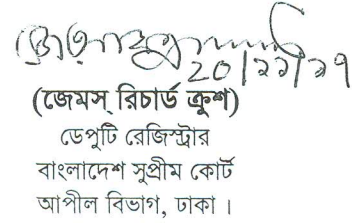 ২০/১১/১৭
(জেমস্ রিচার্ড ক্রুশ)
ডেপুটি রেজিস্ট্রার
বাংলাদেশ সুপ্রীম কোর্ট
আপীল বিভাগ, ঢাকা ।